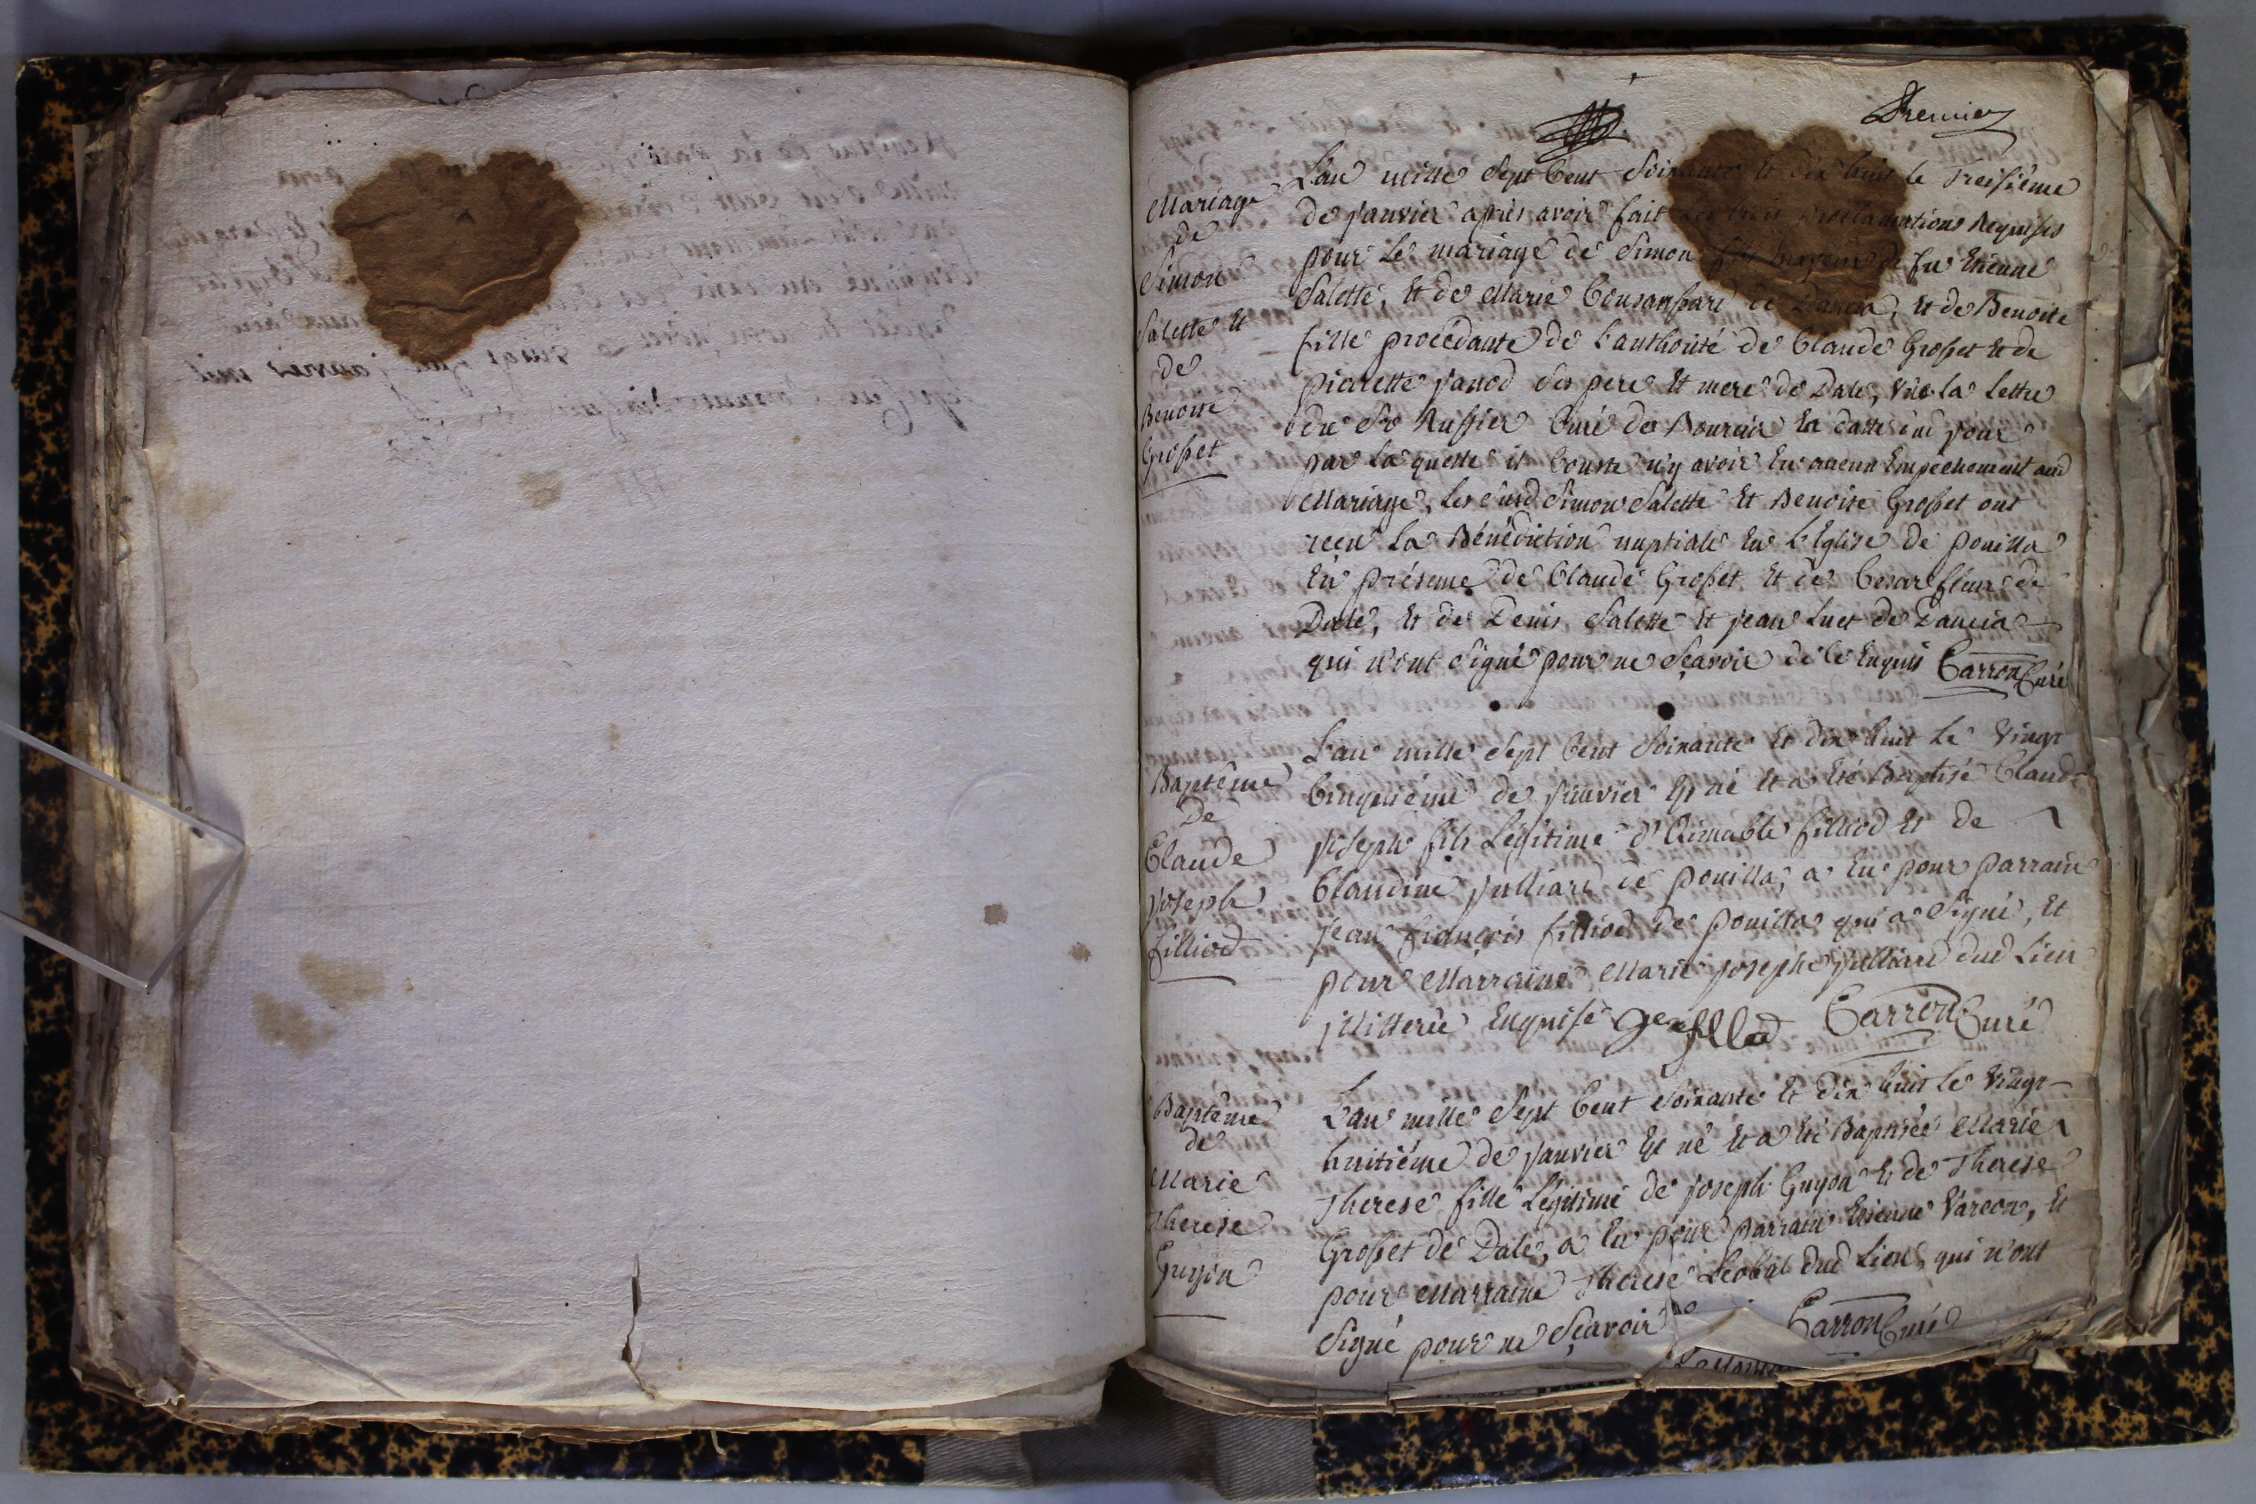 Premier
Mariage
de
Simon
Salette et
de
Benoite
Grosset
L'an mille sept Cent Soixante et dix huit le treisiéme
de janvier après avoir fait les trois proclamations Requises
pour le mariage de Simon fils majeur de fu Etienne
Salette, et de Marie Cousansard de Dancia, et de Benoite
fille procedante de l'authorité de Claude Grosset et de
pierrette janod ses pere et mere de Dale, vûe la lettre
du Sr Ruffier Curé de Bourcia en datte dud jour
par laquelle il Conste n'y avoir eu aucun Empechement aud
Mariage, les susd Simon Salette et Benoite Grosset ont
reçu la Bénédiction nuptiale en l'Eglise de pouilla
en présence de Claude Grosset et de Cesar fleur de
Dale, et de Denis Salette et jean luet de Dancia
qui n'ont signé pour ne sçavoir de ce Enquis Carron Curé
Baptême
De
Claude
joseph
filliod
L'an mille sept Cent Soixante et dix huit le vingt
Cinquiéme de janvier Est né et a été Baptisé Claude
joseph fils Légitime d'Aimable filliod et de
Claudine julliard de pouilla, a eu pour parrain
jean françois filliod de pouilla qui a signé, et
pour Marraine Marie josephe julliard dud Lieu
jllitterée Enquise Carron Curé
Baptême
de
Marie
therese
Guyon
L'an mille sept Cent soixante et dix huit le vingt
huitiéme de janvier Est né et a été Baptisée Marie
Therese fille Légitime de joseph Guyon et de Therese
Grosset de Dale, a eu pour parrain Etienne Vareon, et
pour Marraine Therese dud Lieu, qui n'ont
signé pour ne Sçavoir Carron Curé